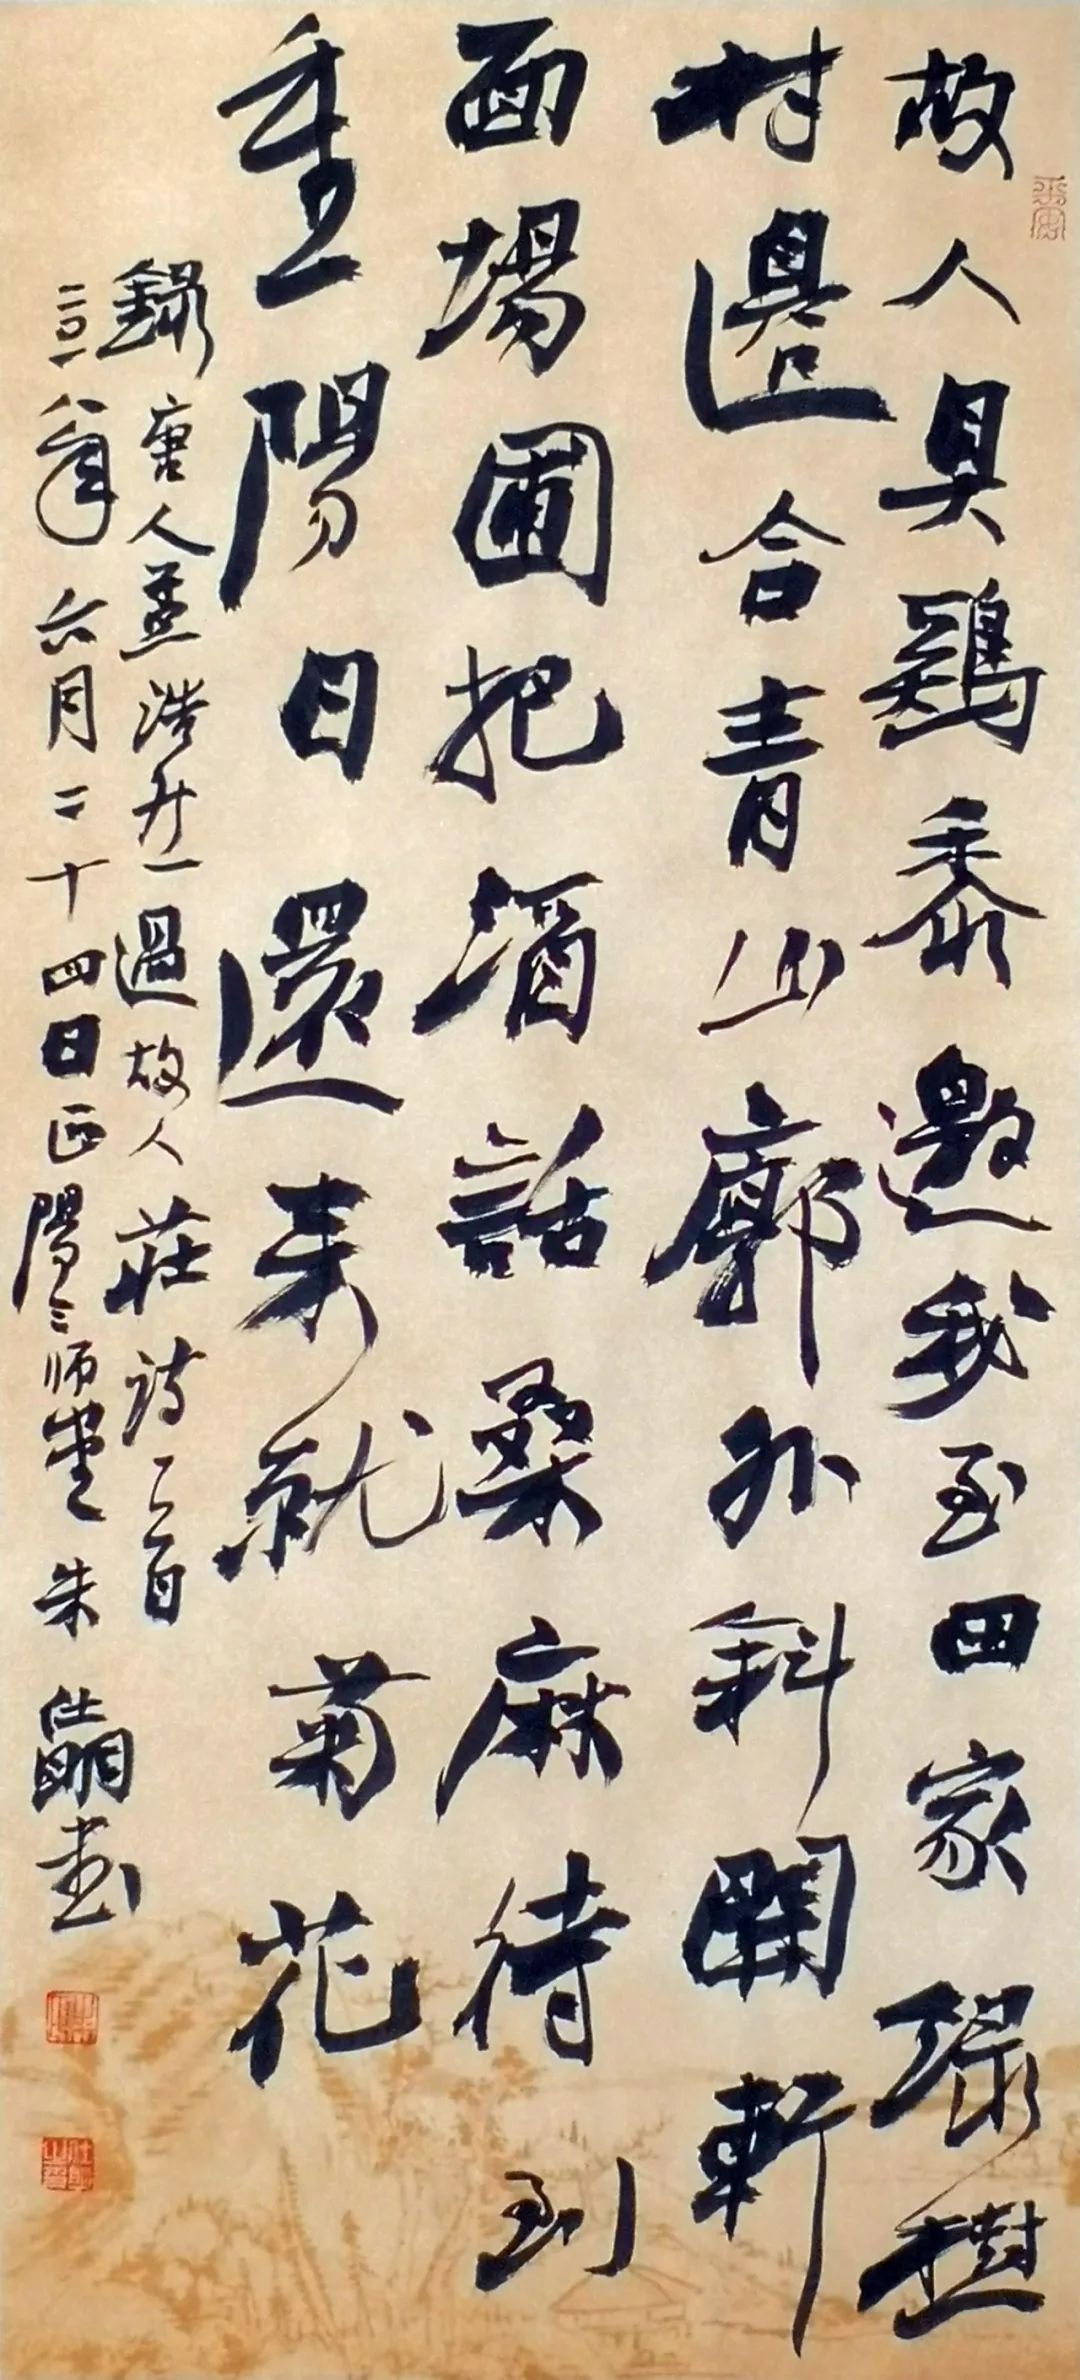 故人具鷄黍邀我至田家緑樹
村邊合青山廓外斜開軒
面場圃把酒話桑麻待到
重陽日還来就菊花
錄唐人孟浩然過故人莊诗一首
二〇一八年六月二十四日正陽三师堂朱仕嗣书